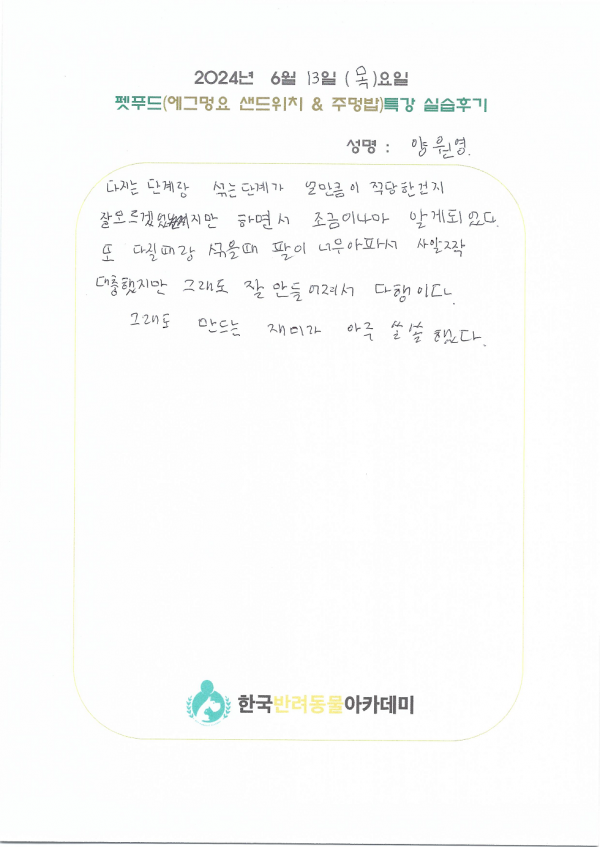 2024년 6월 13일 (목)요일
펫푸드(에그멍요 샌드위치 & 주멍밥)특강 실습후기
성명 : 양원영
다지는 단계랑 섞는단계가 얼만큼이 적당한건지
잘모르겠었지만 하면서 조금이나마 알게되었다.
또 다질때랑 섞을때 팔이 너무아파서 사알짝
대충했지만 그래도 잘 만들어져서 다행이다.
그래도 만드는 재미가 아주 쏠쏠했다.
한국반려동물아카데미